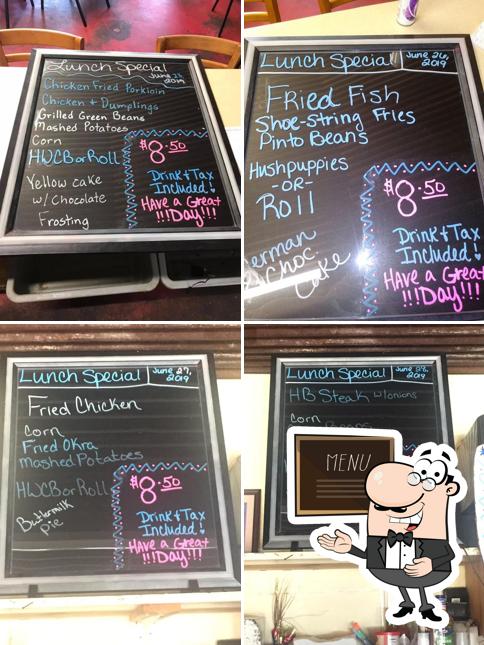 Lunch Special
June 25
2019
Chicken Fried Porkloin
Chicken + Dumplings
Grilled Green Beans
Mashed Potatoes
Corn
HWCB or Roll
Yellow cake
w/ Chocolate
Frosting
$8.50
Drink + Tax
Included!
Have a Great
!!!Day!!!
Lunch Special
June 26,
2019
Fried Fish
Shoe-String Fries
Pinto Beans
Hushpuppies
-OR-
Roll
German
Choc
Cake
$8.50
Drink + Tax
Included!
Have a Great
!!!Day!!!
Lunch Special
June 27,
2019
Fried Chicken
Corn
Fried Okra
Mashed Potatoes
HWCB or Roll
Buttermilk
pie
$8.50
Drink + Tax
Included!
Have a Great
!!!Day!!!
Lunch Special
June 28,
2019
HB Steak w/onions
Corn
MENU